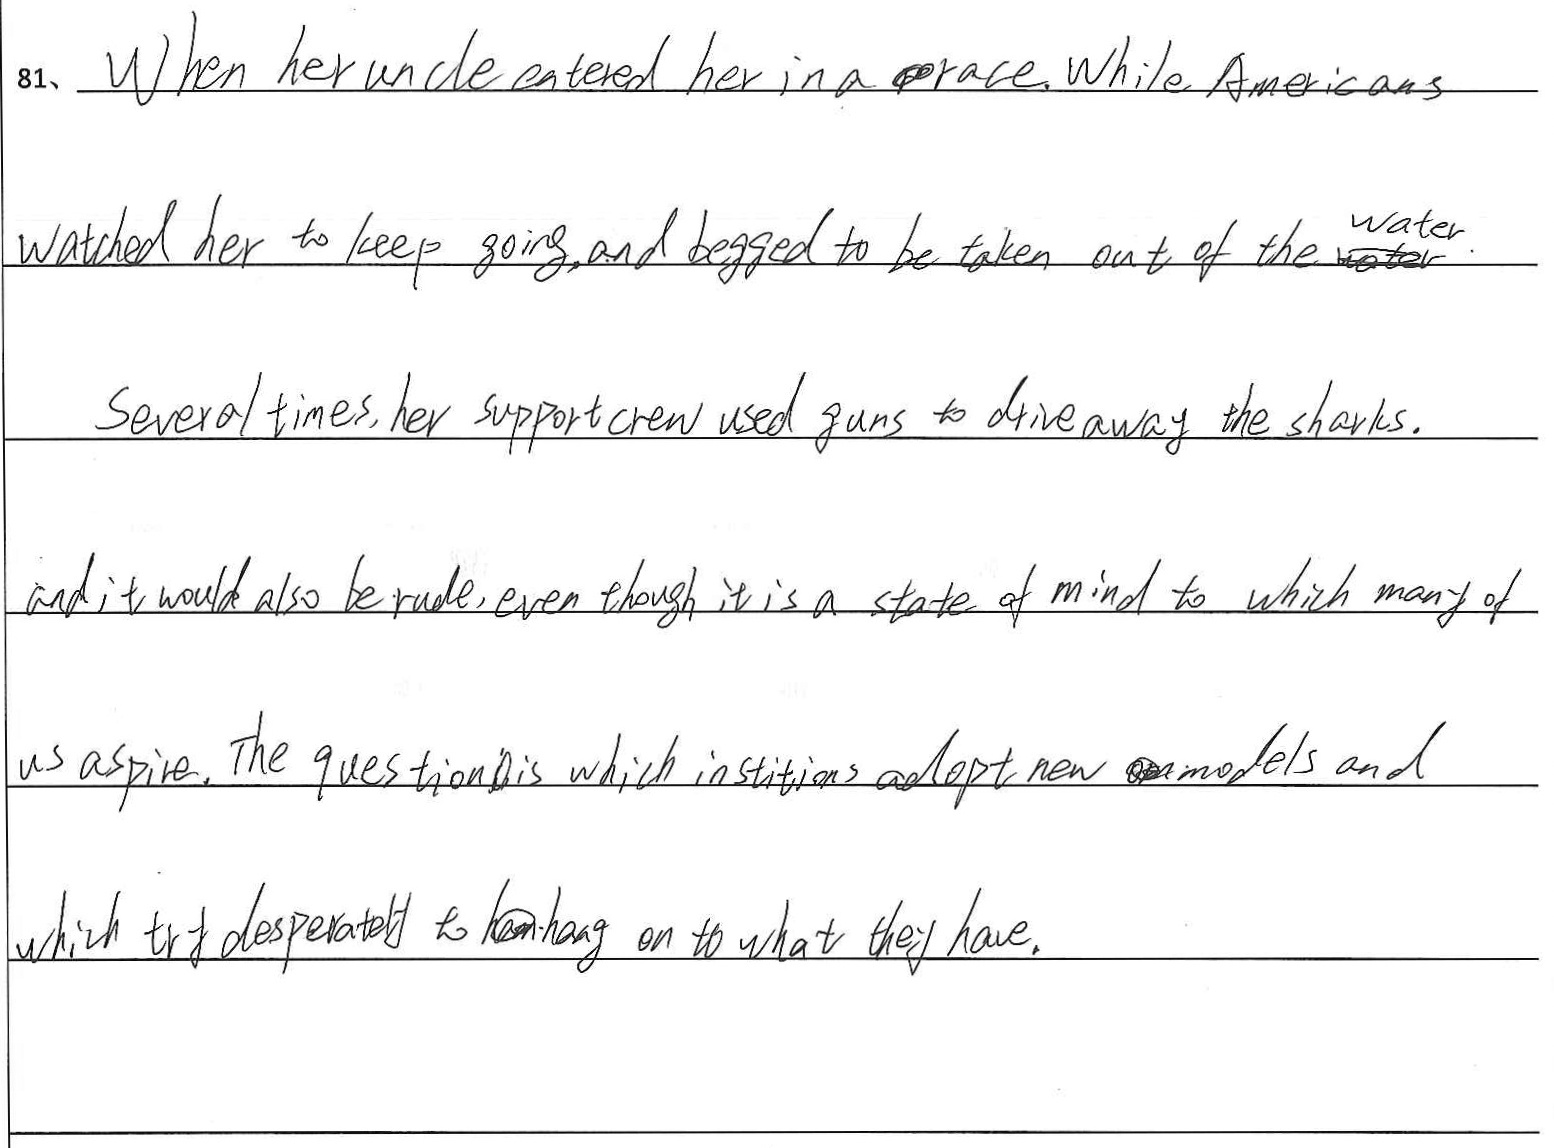 81、 When her uncle entered her in a race. While Americans
watched her to keep going, and begged to be taken out of the water.
Several times, her support crew used guns to drive away the sharks.
and it would also be rude, even though it is a state of mind to which many of
us aspire. The question is which institions adopt new models and
which try desperately to hang on to what they have.